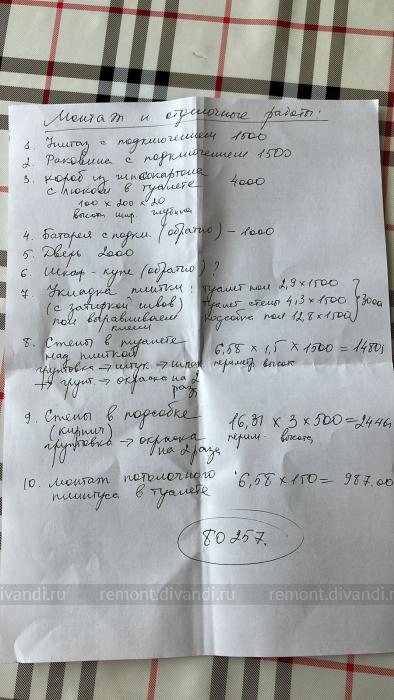 Монтаж и отделочные работы:
1. Унитаз с подключением 1500
2. Раковина с подключением 1500
3. Короб из гипсокартона
с люком в туалете 4000
100 x 200 x 20
высота шир. глубина
4. Батарея с подкл. (обратно) - 1000
5. Дверь 2000
6. Шкаф-купе (обратно) ?
7. Укладка плитки: туалет пол 2,9 x 1500
(с затиркой швов) туалет стены 4,3 x 1500 } 3000
пол выравниваем подсобка пол 12,8 x 1500
клеем
8. Стены в туалете
над плиткой 6,58 x 1,5 x 1500 = 14805
грунтовка → штук. → шпак периметр высот.
→ грунт → окраска на 2
раза
9. Стены в подсобке
(кирпич) 16,31 x 3 x 500 = 2446
грунтовка → окраска перим. высота
на 2 раза
10. Монтаж потолочного 6,58 x 150 = 987.00
плинтуса в туалете
80 257.
divandi.ru remont.divandi.ru remont.divandi.ru